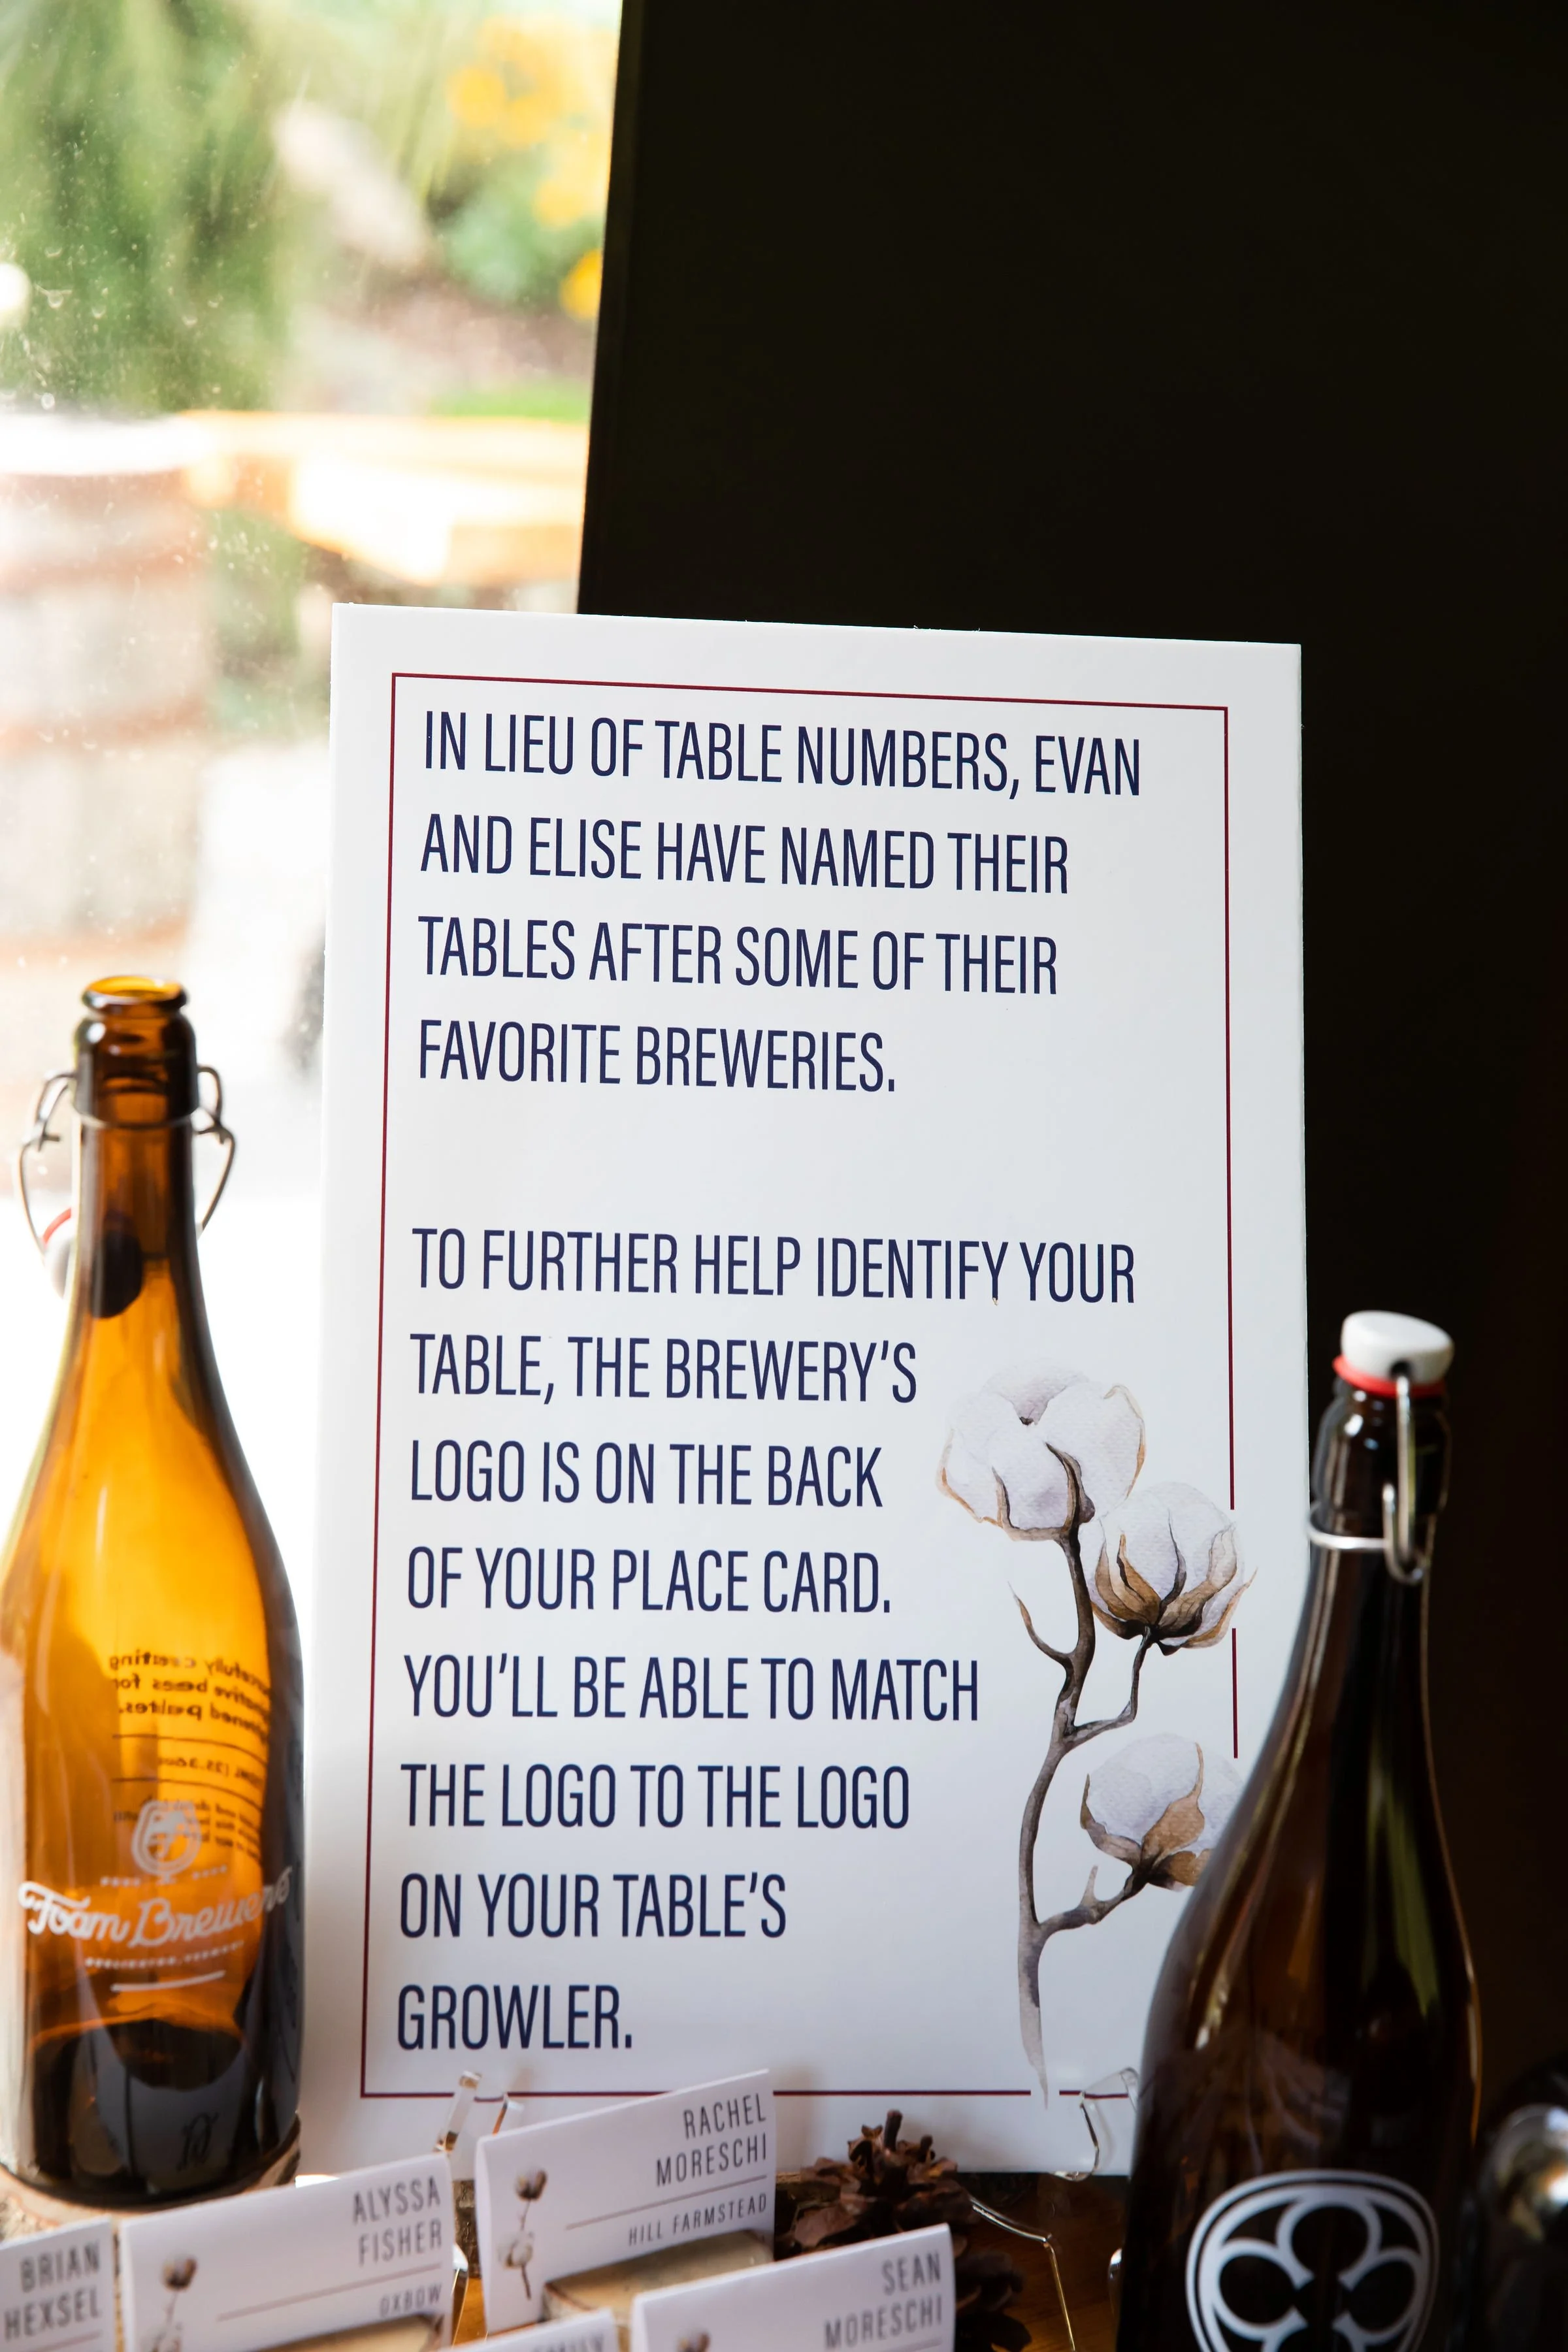 IN LIEU OF TABLE NUMBERS, EVAN
AND ELISE HAVE NAMED THEIR
TABLES AFTER SOME OF THEIR
FAVORITE BREWERIES.
TO FURTHER HELP IDENTIFY YOUR
TABLE, THE BREWERY'S
LOGO IS ON THE BACK
OF YOUR PLACE CARD.
YOU'LL BE ABLE TO MATCH
THE LOGO TO THE LOGO
ON YOUR TABLE'S
GROWLER.
Foam Brewers
RACHEL
MORESCHI
HILL FARMSTEAD
ALYSSA
FISHER
OXBOW
BRIAN
HEXSEL
SEAN
MORESCHI